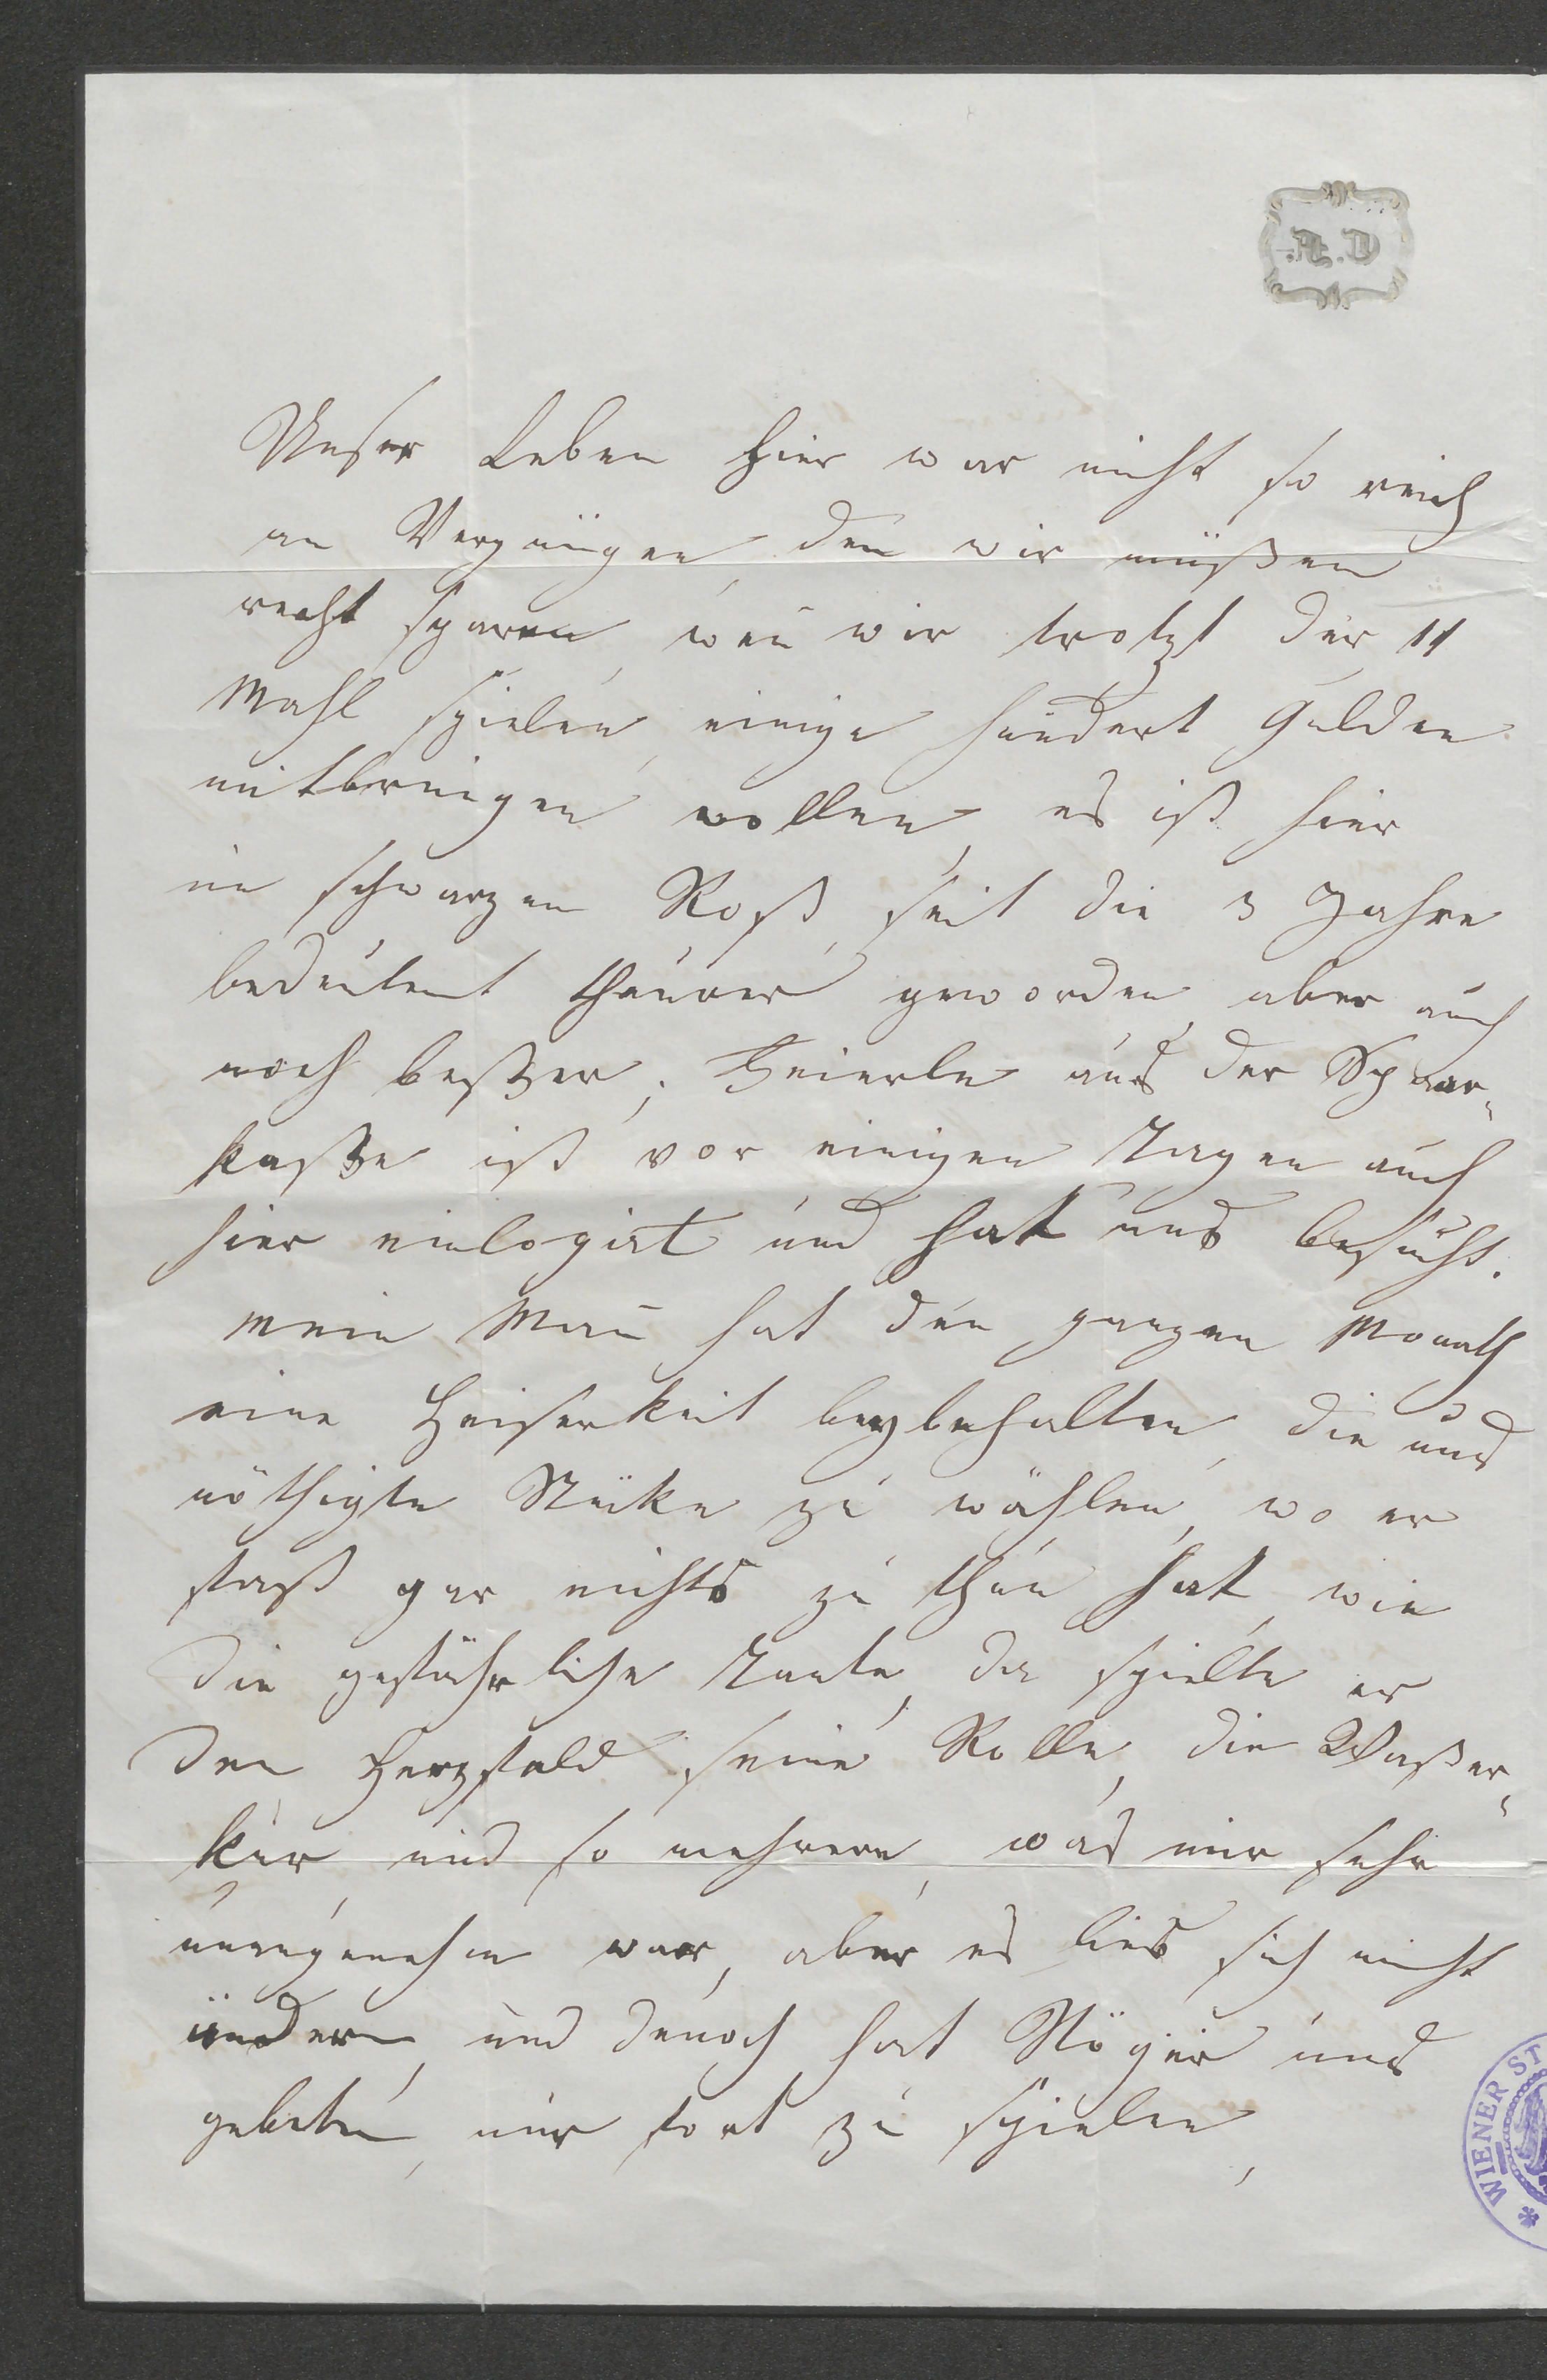 A. D.
Unser Leben hier war nicht so reich
an Vergnügen, den̄ wir müßen
recht sparen, wen̄ wir trotzt der 11
Mahl spielen, einige hundert Gulden
mitbringen wollen, es ist hier
im schwarzen Roß, seit die 3 Jahre
bedeutent theurer geworden, aber auch
noch beßer. Heierle aus der Spaar-
kaße ist vor einigen Tagen auch
hier einlogirt und hat uns besucht.
Mein Man̄ hat den ganzen Monath
eine Heiserkeit beybehalten, die uns
nöthigte Stücke zu wählen, wo er
fast gar nichts zu thun hat, wie
die gefährliche Tante, da spielte er
den Herzfeld seine Rolle, die Waßer-
kur, und so mehrere, was mir sehr
unangenehm war, aber es lies sich nicht
ändern, und den̄och hat Stöger uns
gebeten, nur fort zu spielen,
WIENER ST